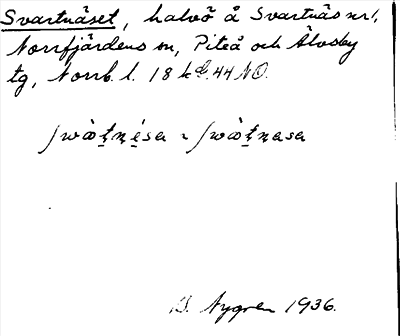 Svartnäset, halvö å Svartnäs nr 1,
Norrfjärdens sn, Piteå och Älvsby
tg, Norrb. l. 18 k G. 44 NO.
ʃwὰṭṇésa ~ ʃwὰṭṇasa
B. Nygren 1936.